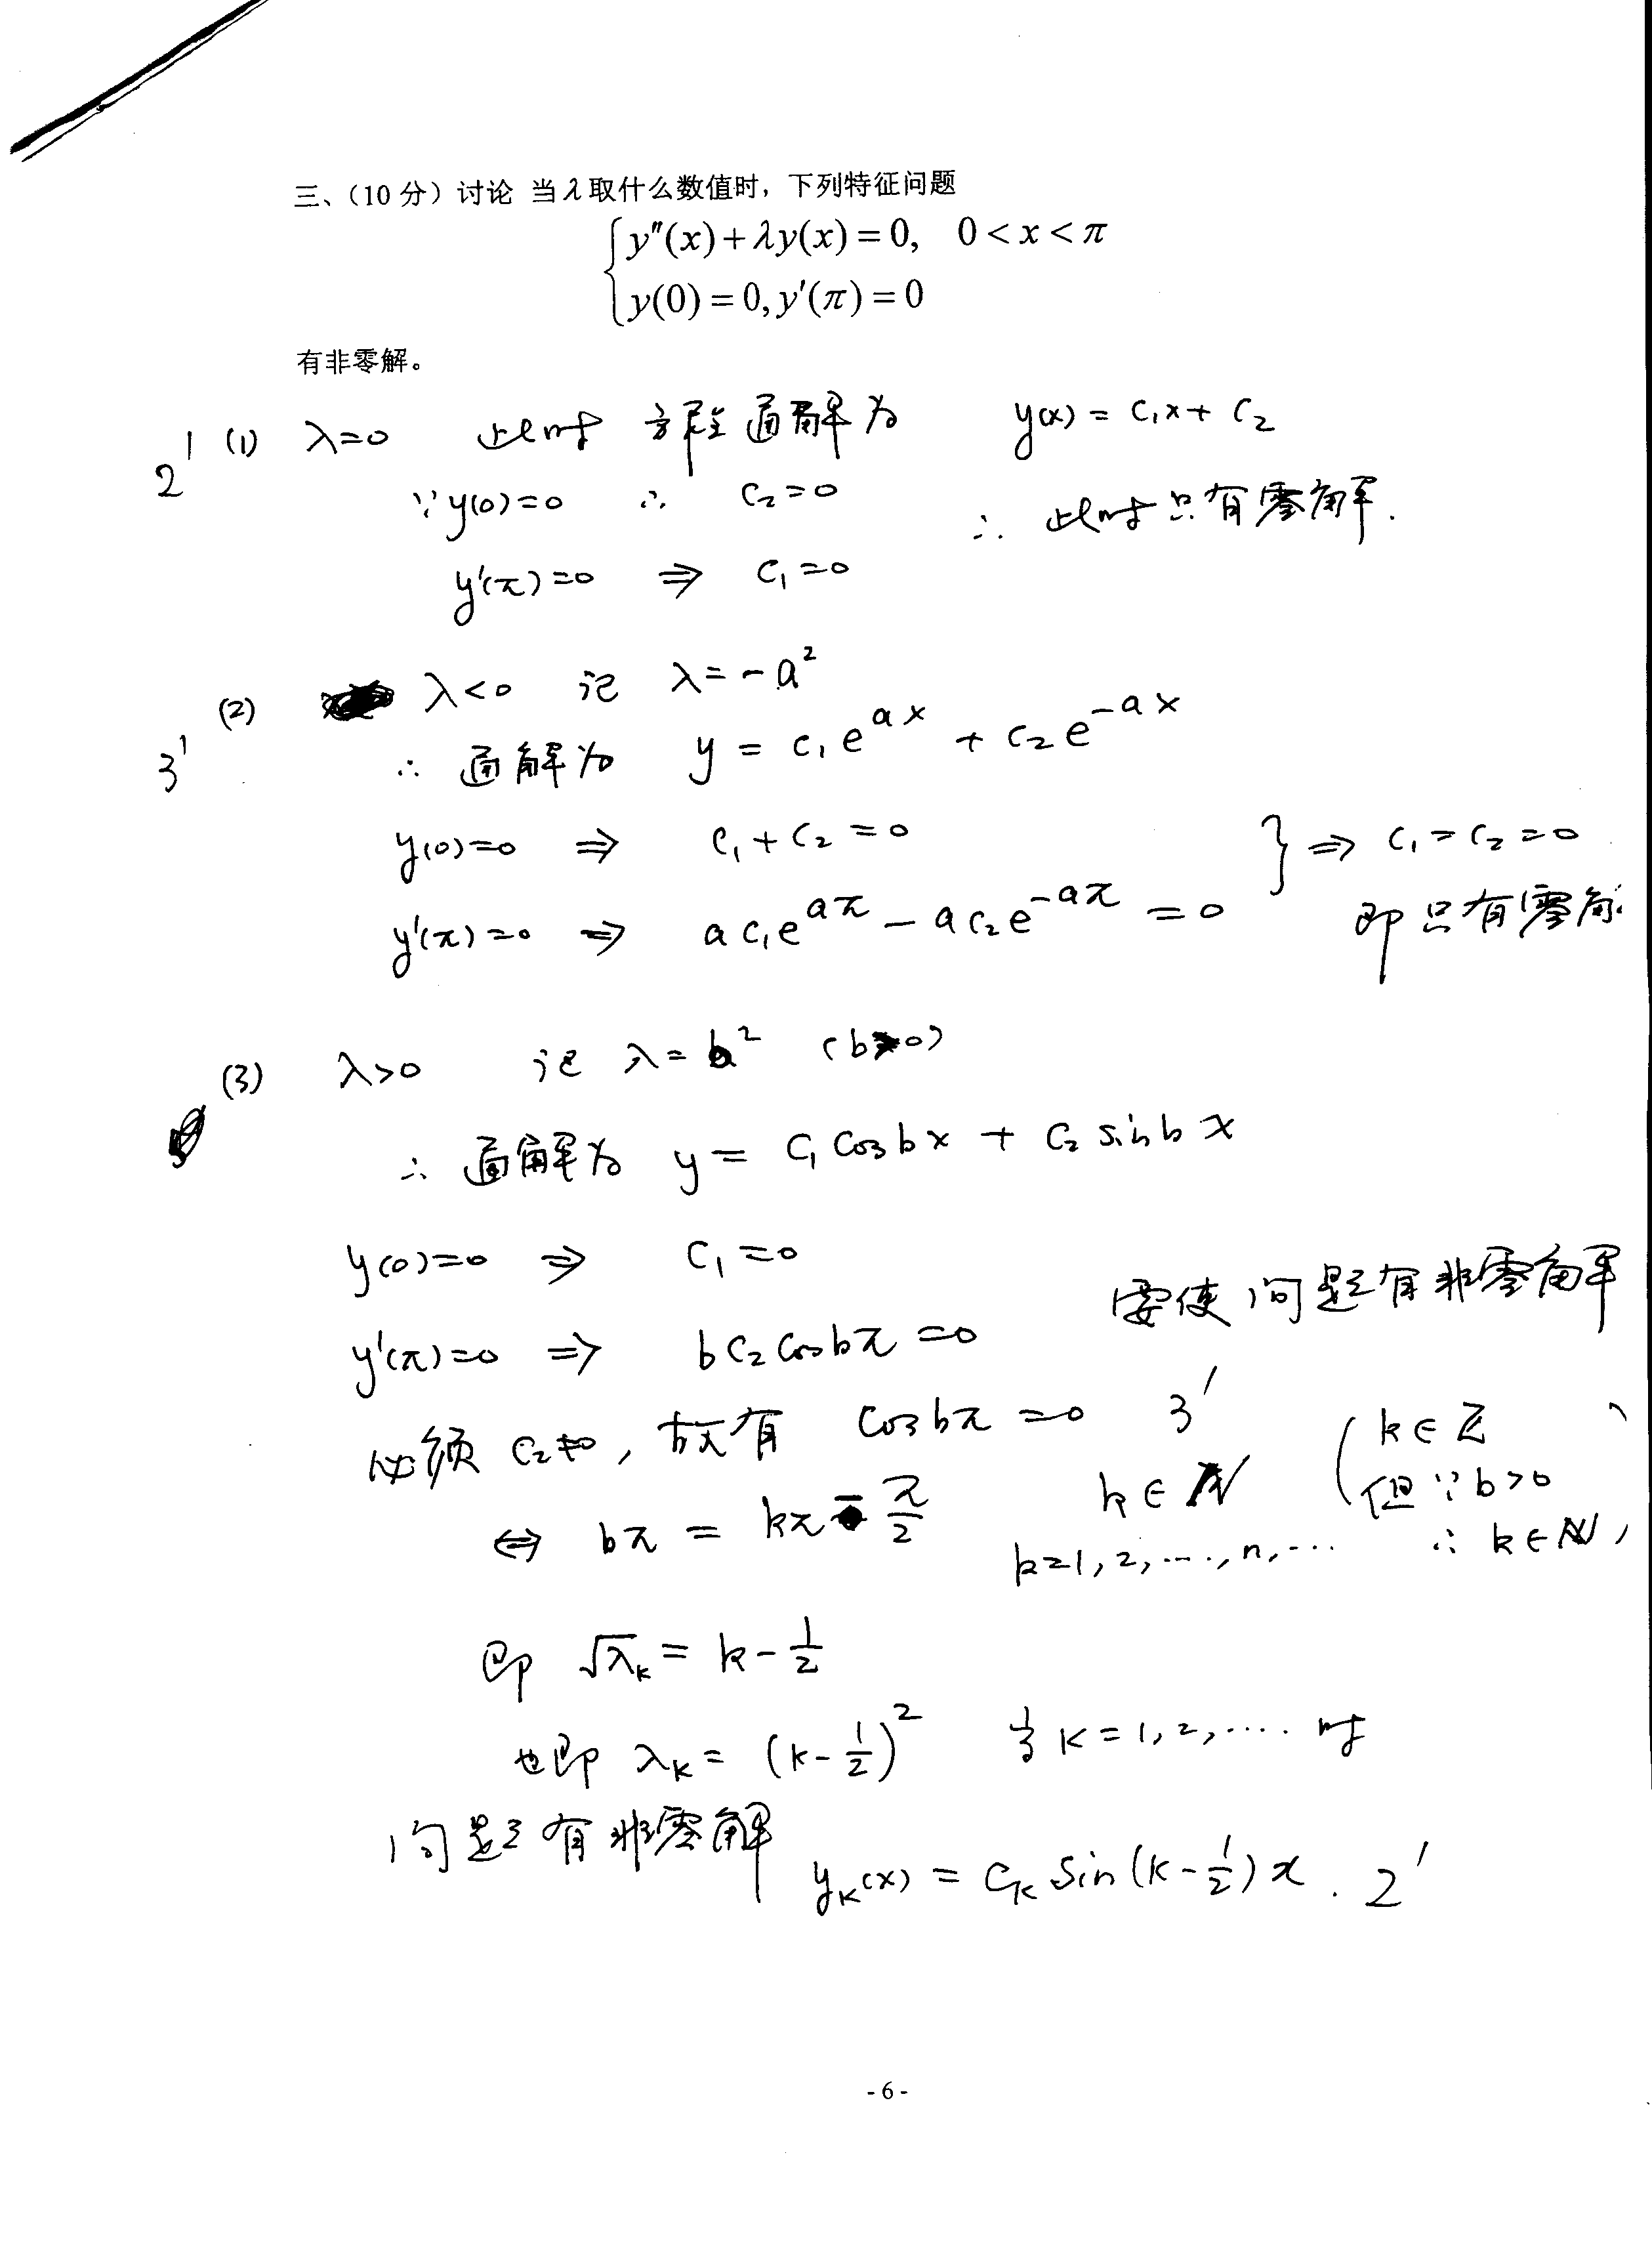 三、（10 分）讨论 当λ取什么数值时，下列特征问题
y″(x)+λy(x)=0, 0<x<π
y(0)=0, y′(π)=0
有非零解。
2′ (1) λ=0 此时 方程通解为 y(x) = C₁x + C₂
∵ y(0)=0 ∴ C₂=0 ∴ 此时只有零解.
y′(π)=0 ⇒ C₁=0
(2) λ<0 记 λ=-a²
3′ ∴ 通解为 y = C₁e^{ax} + C₂e^{-ax}
y(0)=0 ⇒ C₁+C₂=0 } ⇒ C₁=C₂=0
y′(π)=0 ⇒ aC₁e^{aπ} - aC₂e^{-aπ} = 0 即只有零解
(3) λ>0 记 λ=b² (b>0)
∴ 通解为 y = C₁cosbx + C₂sinbx
y(0)=0 ⇒ C₁=0
y′(π)=0 ⇒ bC₂cosbπ=0 要使问题有非零解
必须 C₂≠0, 故有 cosbπ=0 3′
⇔ bπ = kπ-π/2 k∈N (k∈Z
k=1,2,…,n,… 但∵b>0
∴ k∈N)
即 √λₖ = k-1/2
也即 λₖ = (k-1/2)² 当 k=1,2,…. 时
问题有非零解 yₖ(x) = Cₖ sin(k-1/2)x. 2′
-6-